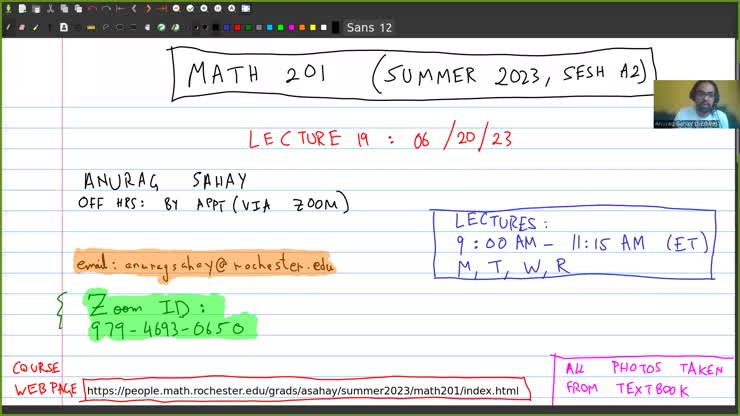 Sans 12
MATH 201 (SUMMER 2023, SESH A2)
LECTURE 19 : 06/20/23
ANURAG SAHAY
OFF HRS: BY APPT (VIA ZOOM)
LECTURES:
9:00 AM - 11:15 AM (ET)
M, T, W, R
email: anuragsahay@rochester.edu
Zoom ID:
979-4693-0650
COURSE
WEBPAGE
https://people.math.rochester.edu/grads/asahay/summer2023/math201/index.html
ALL PHOTOS TAKEN
FROM TEXTBOOK